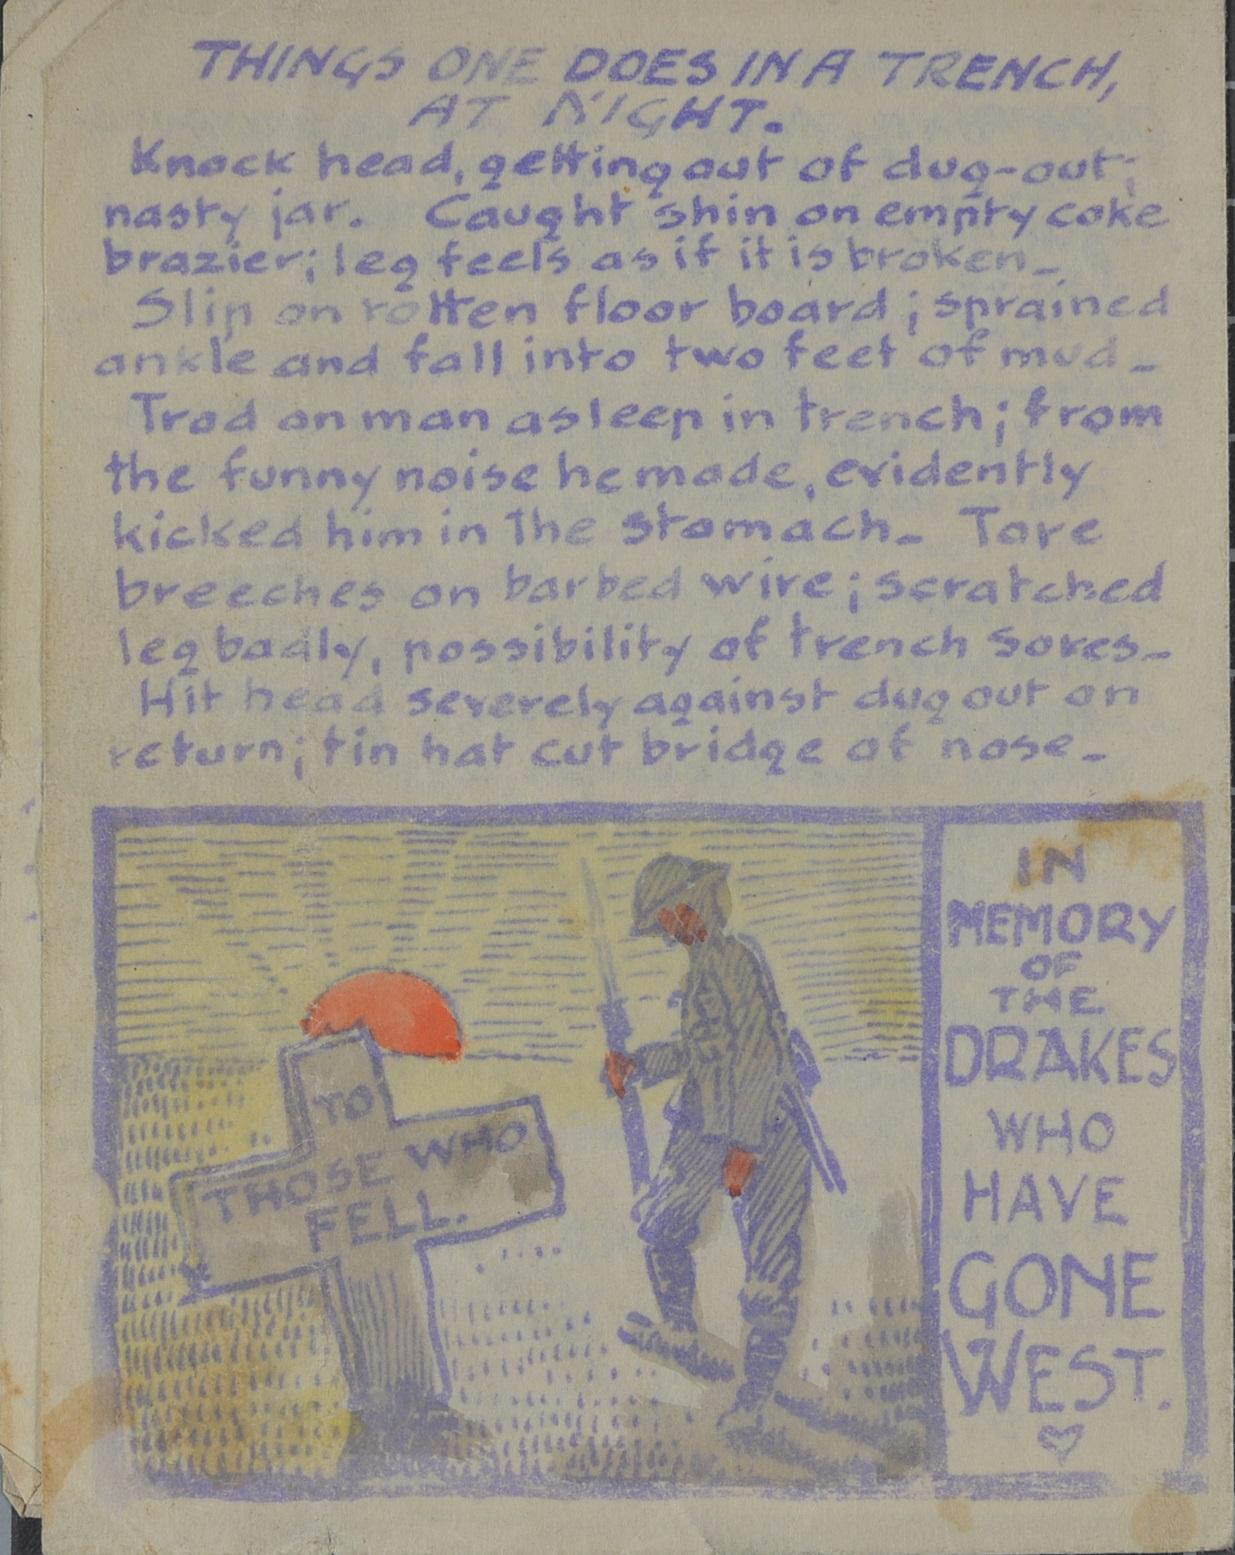 THINGS ONE DOES IN A TRENCH,
AT NIGHT.
Knock head, getting out of dug-out;
nasty jar. Caught shin on empty coke
brazier; leg feels as if it is broken_
Slip on rotten floor board; sprained
ankle and fall into two feet of mud_
Trod on man asleep in trench; from
the funny noise he made, evidently
kicked him in the stomach_ Tore
breeches on barbed wire; scratched
leg badly, possibility of trench sores_
Hit head severely against dug out on
return; tin hat cut bridge of nose_
TO
THOSE WHO
FELL.
IN
MEMORY
OF
THE
DRAKES
WHO
HAVE
GONE
WEST.